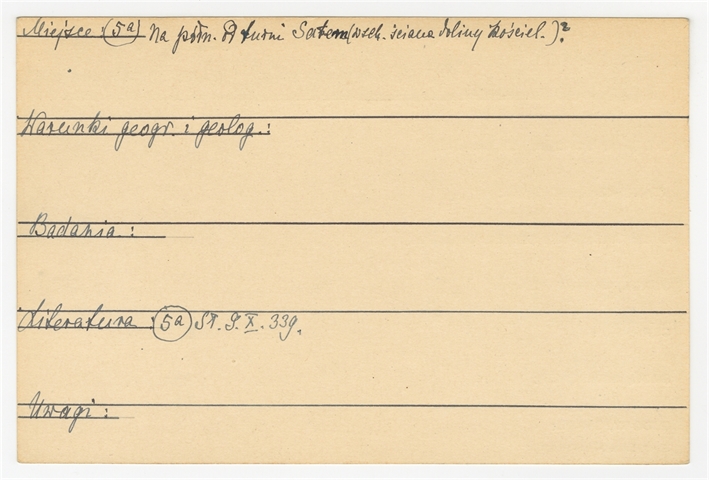 Miejsce: (5a) Na półn. od turni Satem (wsch. ściana doliny kościel.)?
Warunki geogr. i geolog.:
Badania:
Literatura: (5a) ST. G. X. 339.
Uwagi: